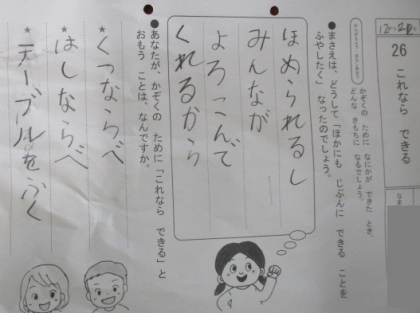 12.2
26 これなら できる
かぞくの ために なにかが できた とき、
どんな きもちに なるでしょう。
●まさえは、どうして「ほかにも じぶんに できる ことを
ふやしたく」 なったのでしょう。
ほめられるし
みんなが
よろこんで
くれるから
●あなたが、かぞくの ために「これなら できる」と
おもう ことは、なんですか。
★くつならべ
★はしならべ
★テーブルをふく